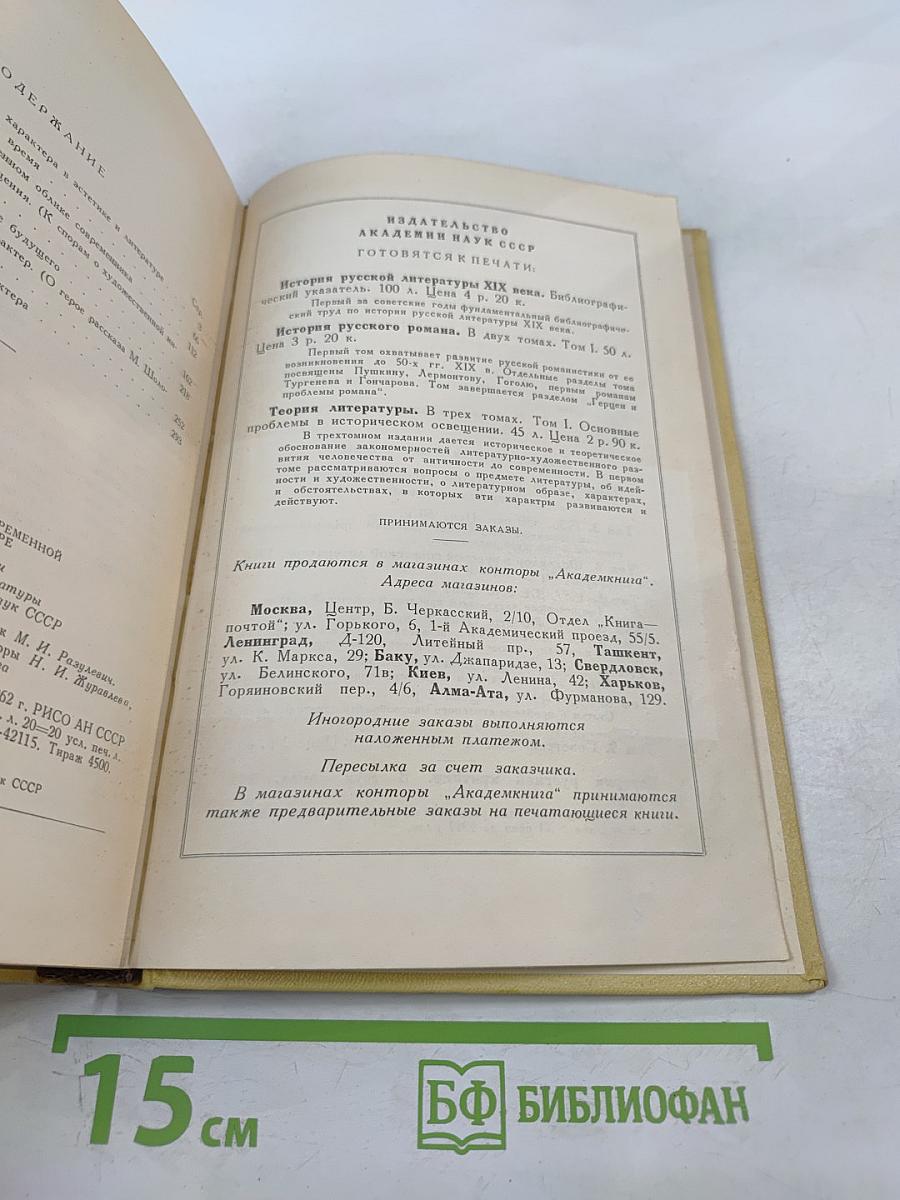 ОДЕРЖАНИЕ
характера в эстетике и литературе
время
нном облике современника
щения. (К спорам о художественной
будущего
актер. (О герое рассказа М. Шоло-
ктера
Стр.
3
112
162
218
252
293
РЕМЕННОЙ
РЕ
и
атуры
ук СССР
к М. И. Разулевич.
оры Н. И. Журавлева,
ва
62 г. РИСО АН СССР
л. 20=20 усл. печ. л.
-42115. Тираж 4500.
к СССР
ИЗДАТЕЛЬСТВО
АКАДЕМИИ НАУК СССР
ГОТОВЯТСЯ К ПЕЧАТИ:
История русской литературы XIX века. Библиографи-
ческий указатель. 100 л. Цена 4 р. 20 к.
Первый за советские годы фундаментальный библиографиче-
ский труд по истории русской литературы XIX века.
История русского романа. В двух томах. Том I. 50 л.
Цена 3 р. 20 к.
Первый том охватывает развитие русской романистики от ее
возникновения до 50-х гг. XIX в. Отдельные разделы тома
посвящены Пушкину, Лермонтову, Гоголю, первым романам
Тургенева и Гончарова. Том завершается разделом „Герцен и
проблемы романа“.
Теория литературы. В трех томах. Том I. Основные
проблемы в историческом освещении. 45 л. Цена 2 р. 90 к.
В трехтомном издании дается историческое и теоретическое
обоснование закономерностей литературно-художественного раз-
вития человечества от античности до современности. В первом
томе рассматриваются вопросы о предмете литературы, об идей-
ности и художественности, о литературном образе, характерах,
и обстоятельствах, в которых эти характры развиваются и
действуют.
ПРИНИМАЮТСЯ ЗАКАЗЫ.
Книги продаются в магазинах конторы „Академкнига“.
Адреса магазинов:
Москва, Центр, Б. Черкасский, 2/10, Отдел „Книга—
почтой“; ул. Горького, 6, 1-й Академический проезд, 55/5.
Ленинград, Д-120, Литейный пр., 57, Ташкент,
ул. К. Маркса, 29; Баку, ул. Джапаридзе, 13; Свердловск,
ул. Белинского, 71в; Киев, ул. Ленина, 42; Харьков,
Горяиновский пер., 4/6, Алма-Ата, ул. Фурманова, 129.
Иногородние заказы выполняются
наложенным платежом.
Пересылка за счет заказчика.
В магазинах конторы „Академкнига“ принимаются
также предварительные заказы на печатающиеся книги.
15 см
БФ БИБЛИОФАН